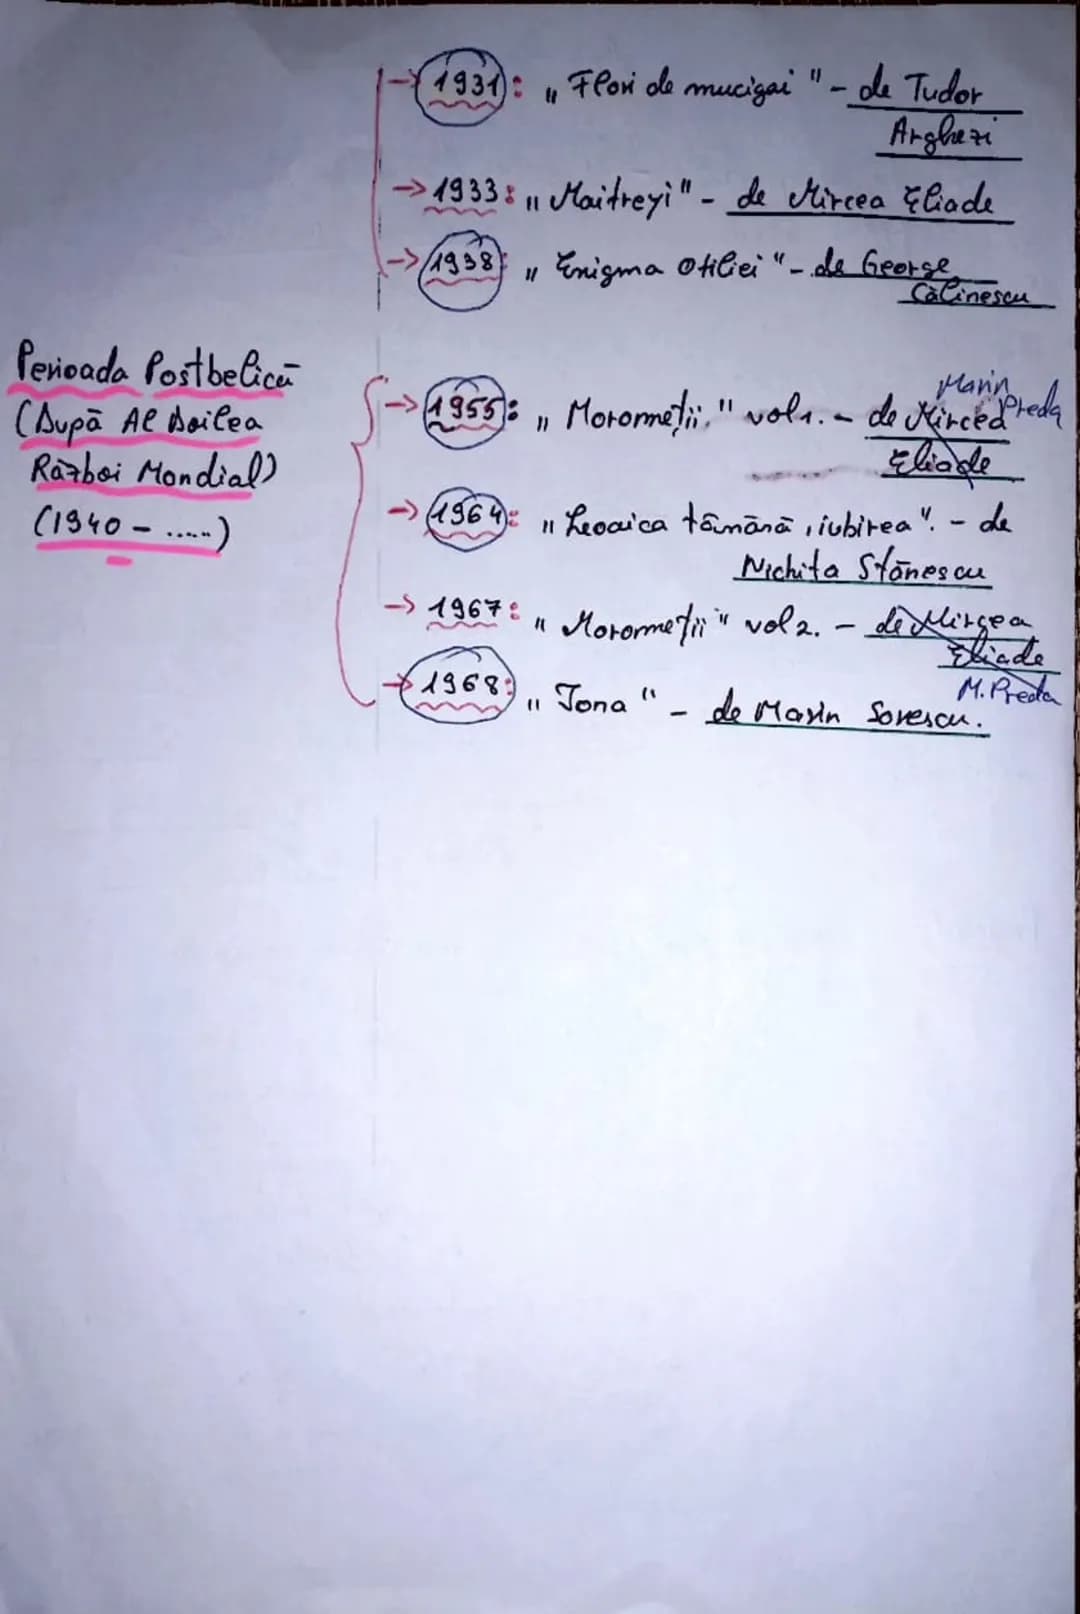 → 1931: „Flori de mucigai" - de Tudor
Arghezi
→ 1933: „Maitreyi" - de Mircea Eliade
→ 1938: „Enigma Otiliei" - de George
Călinescu
Perioada Postbelică
(După Al Doilea
Război Mondial)
(1940 - ......)
→ 1955: „Moromeții." vol1. - de Mircea Marin Preda
Eliade
→ 1964: „Leoaica tânără, iubirea". - de
Nichita Stănescu
→ 1967: „Moromeții" vol2. - de Mircea
Eliade
M. Preda
→ 1968: „Iona" - de Marin Sorescu.